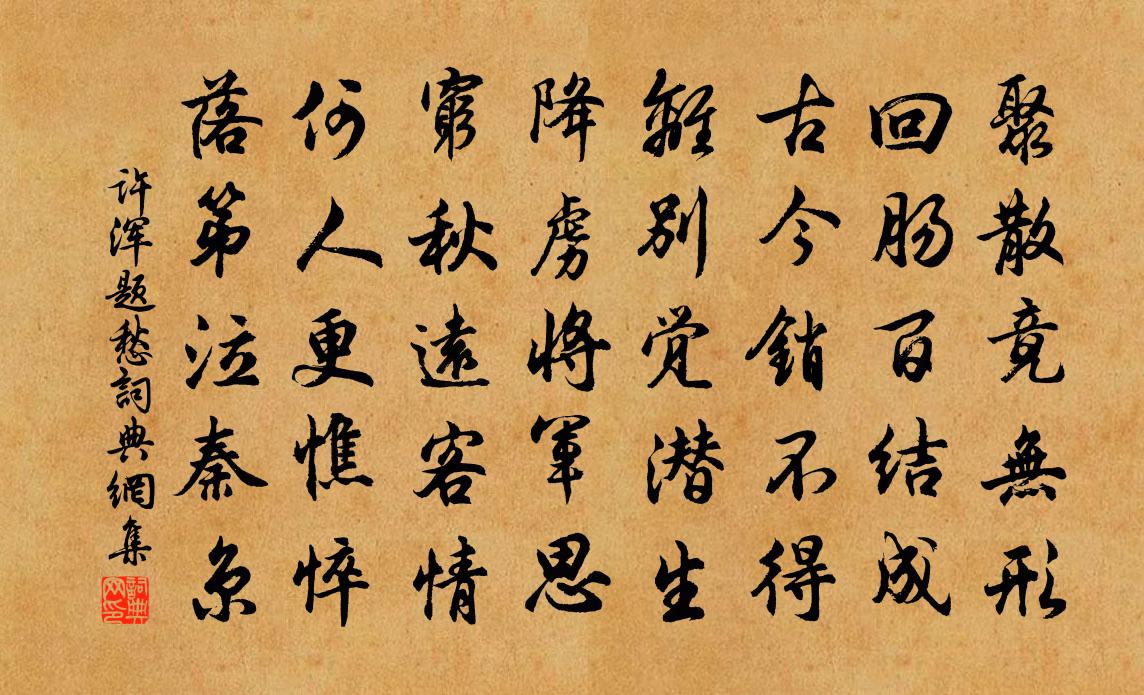 聚散竟無形
回肠百结成
古今銷不得
離别觉潜生
降虏将軍思
窮秋遠客情
何人更憔悴
落第泣秦京
许渾题愁詞典網集
詞典网印